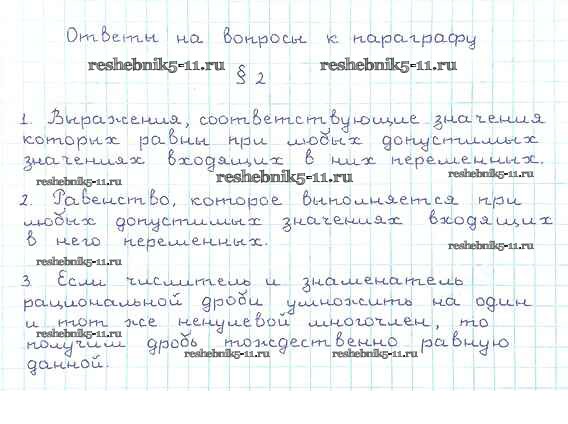 Ответы на вопросы к параграфу
reshebnik5-11.ru reshebnik5-11.ru
§ 2
1. Выражения, соответствующие значения
которых равны при любых допустимых
значениях входящих в них переменных.
reshebnik5-11.ru reshebnik5-11.ru reshebnik5-11.ru
2. Равенство, которое выполняется при
любых допустимых значениях входящих
в него переменных.
reshebnik5-11.ru
reshebnik5-11.ru
3 Если числитель и знаменатель
рациональной дроби умножить на один
и тот же ненулевой многочлен, то
reshebnik5-11.ru
получим дробь тождественно равную
reshebnik5-11.ru reshebnik5-11.ru
данной.